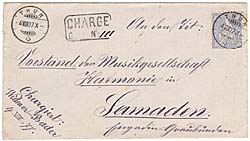 THUN
CHARGÉ
N 111
An den Tit:
Vorstand der Musikgesellschaft
Harmonie in
Samaden
Chargirt
4. VIII 77.
Graubünden